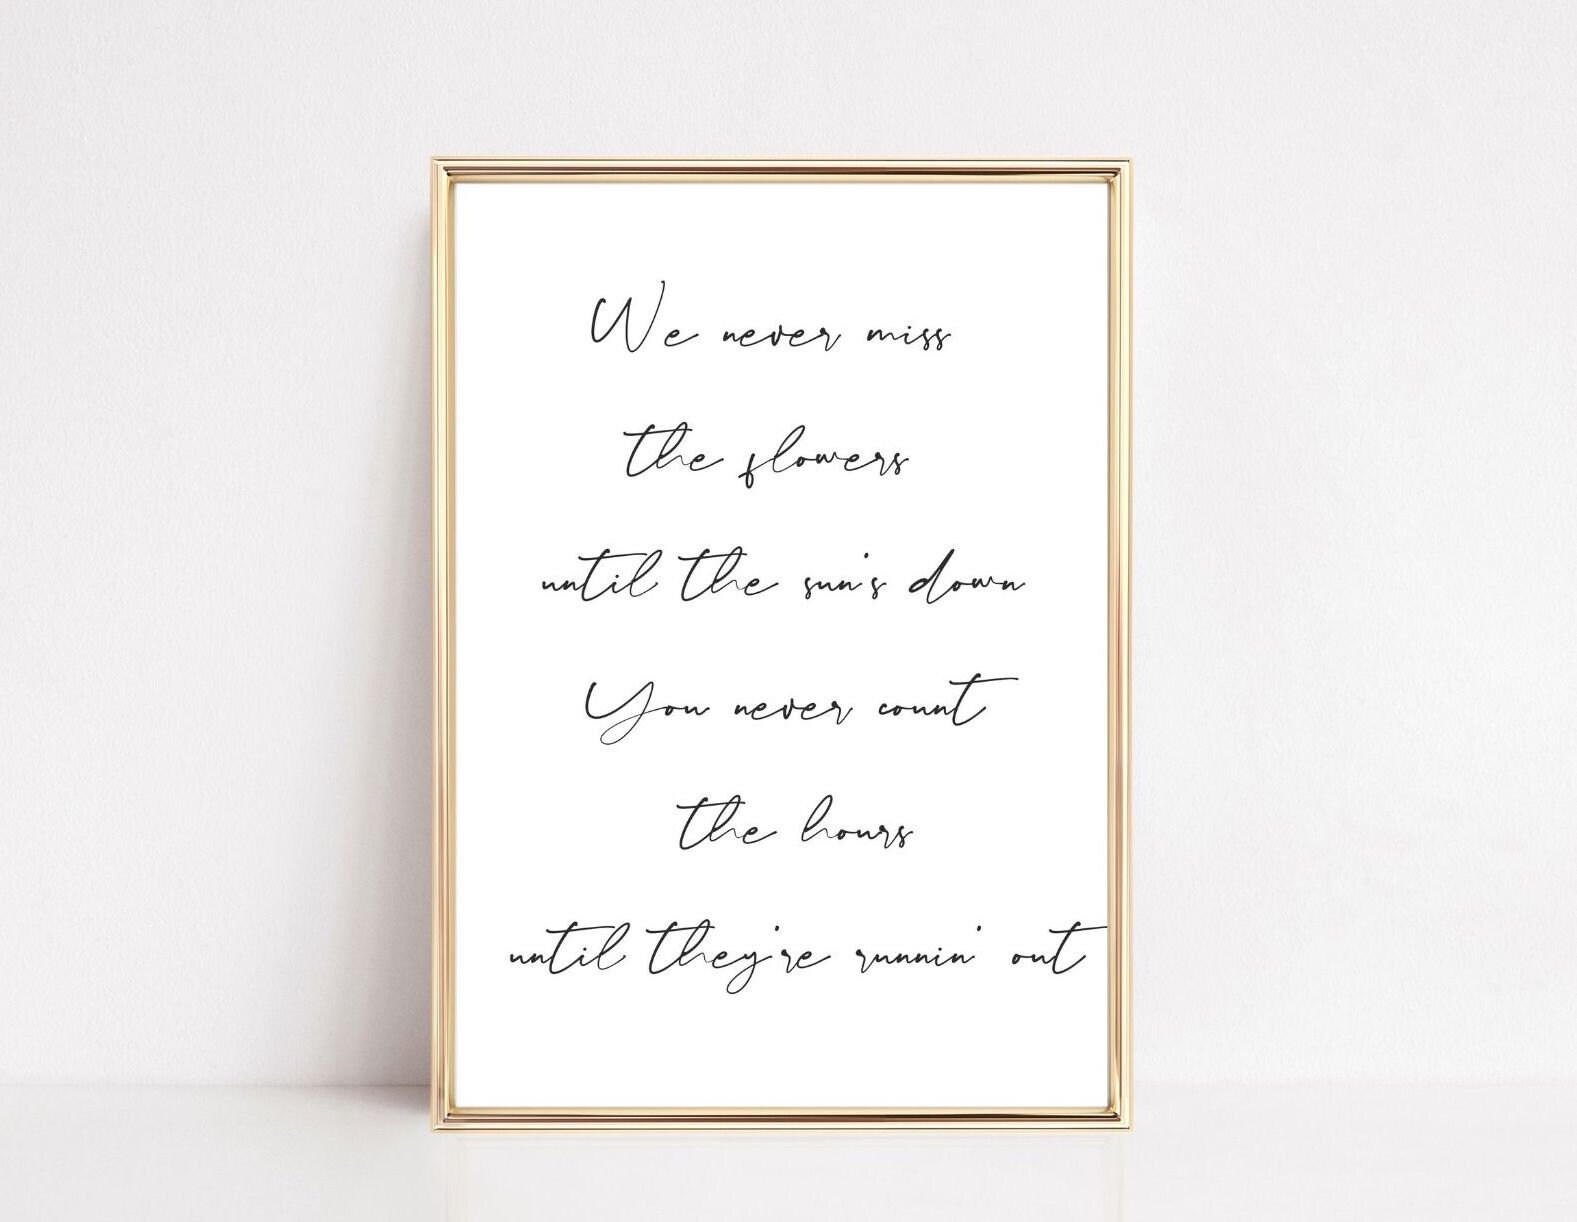 We never miss
the flowers
until the sun's down
You never count
the hours
until they're runnin' out